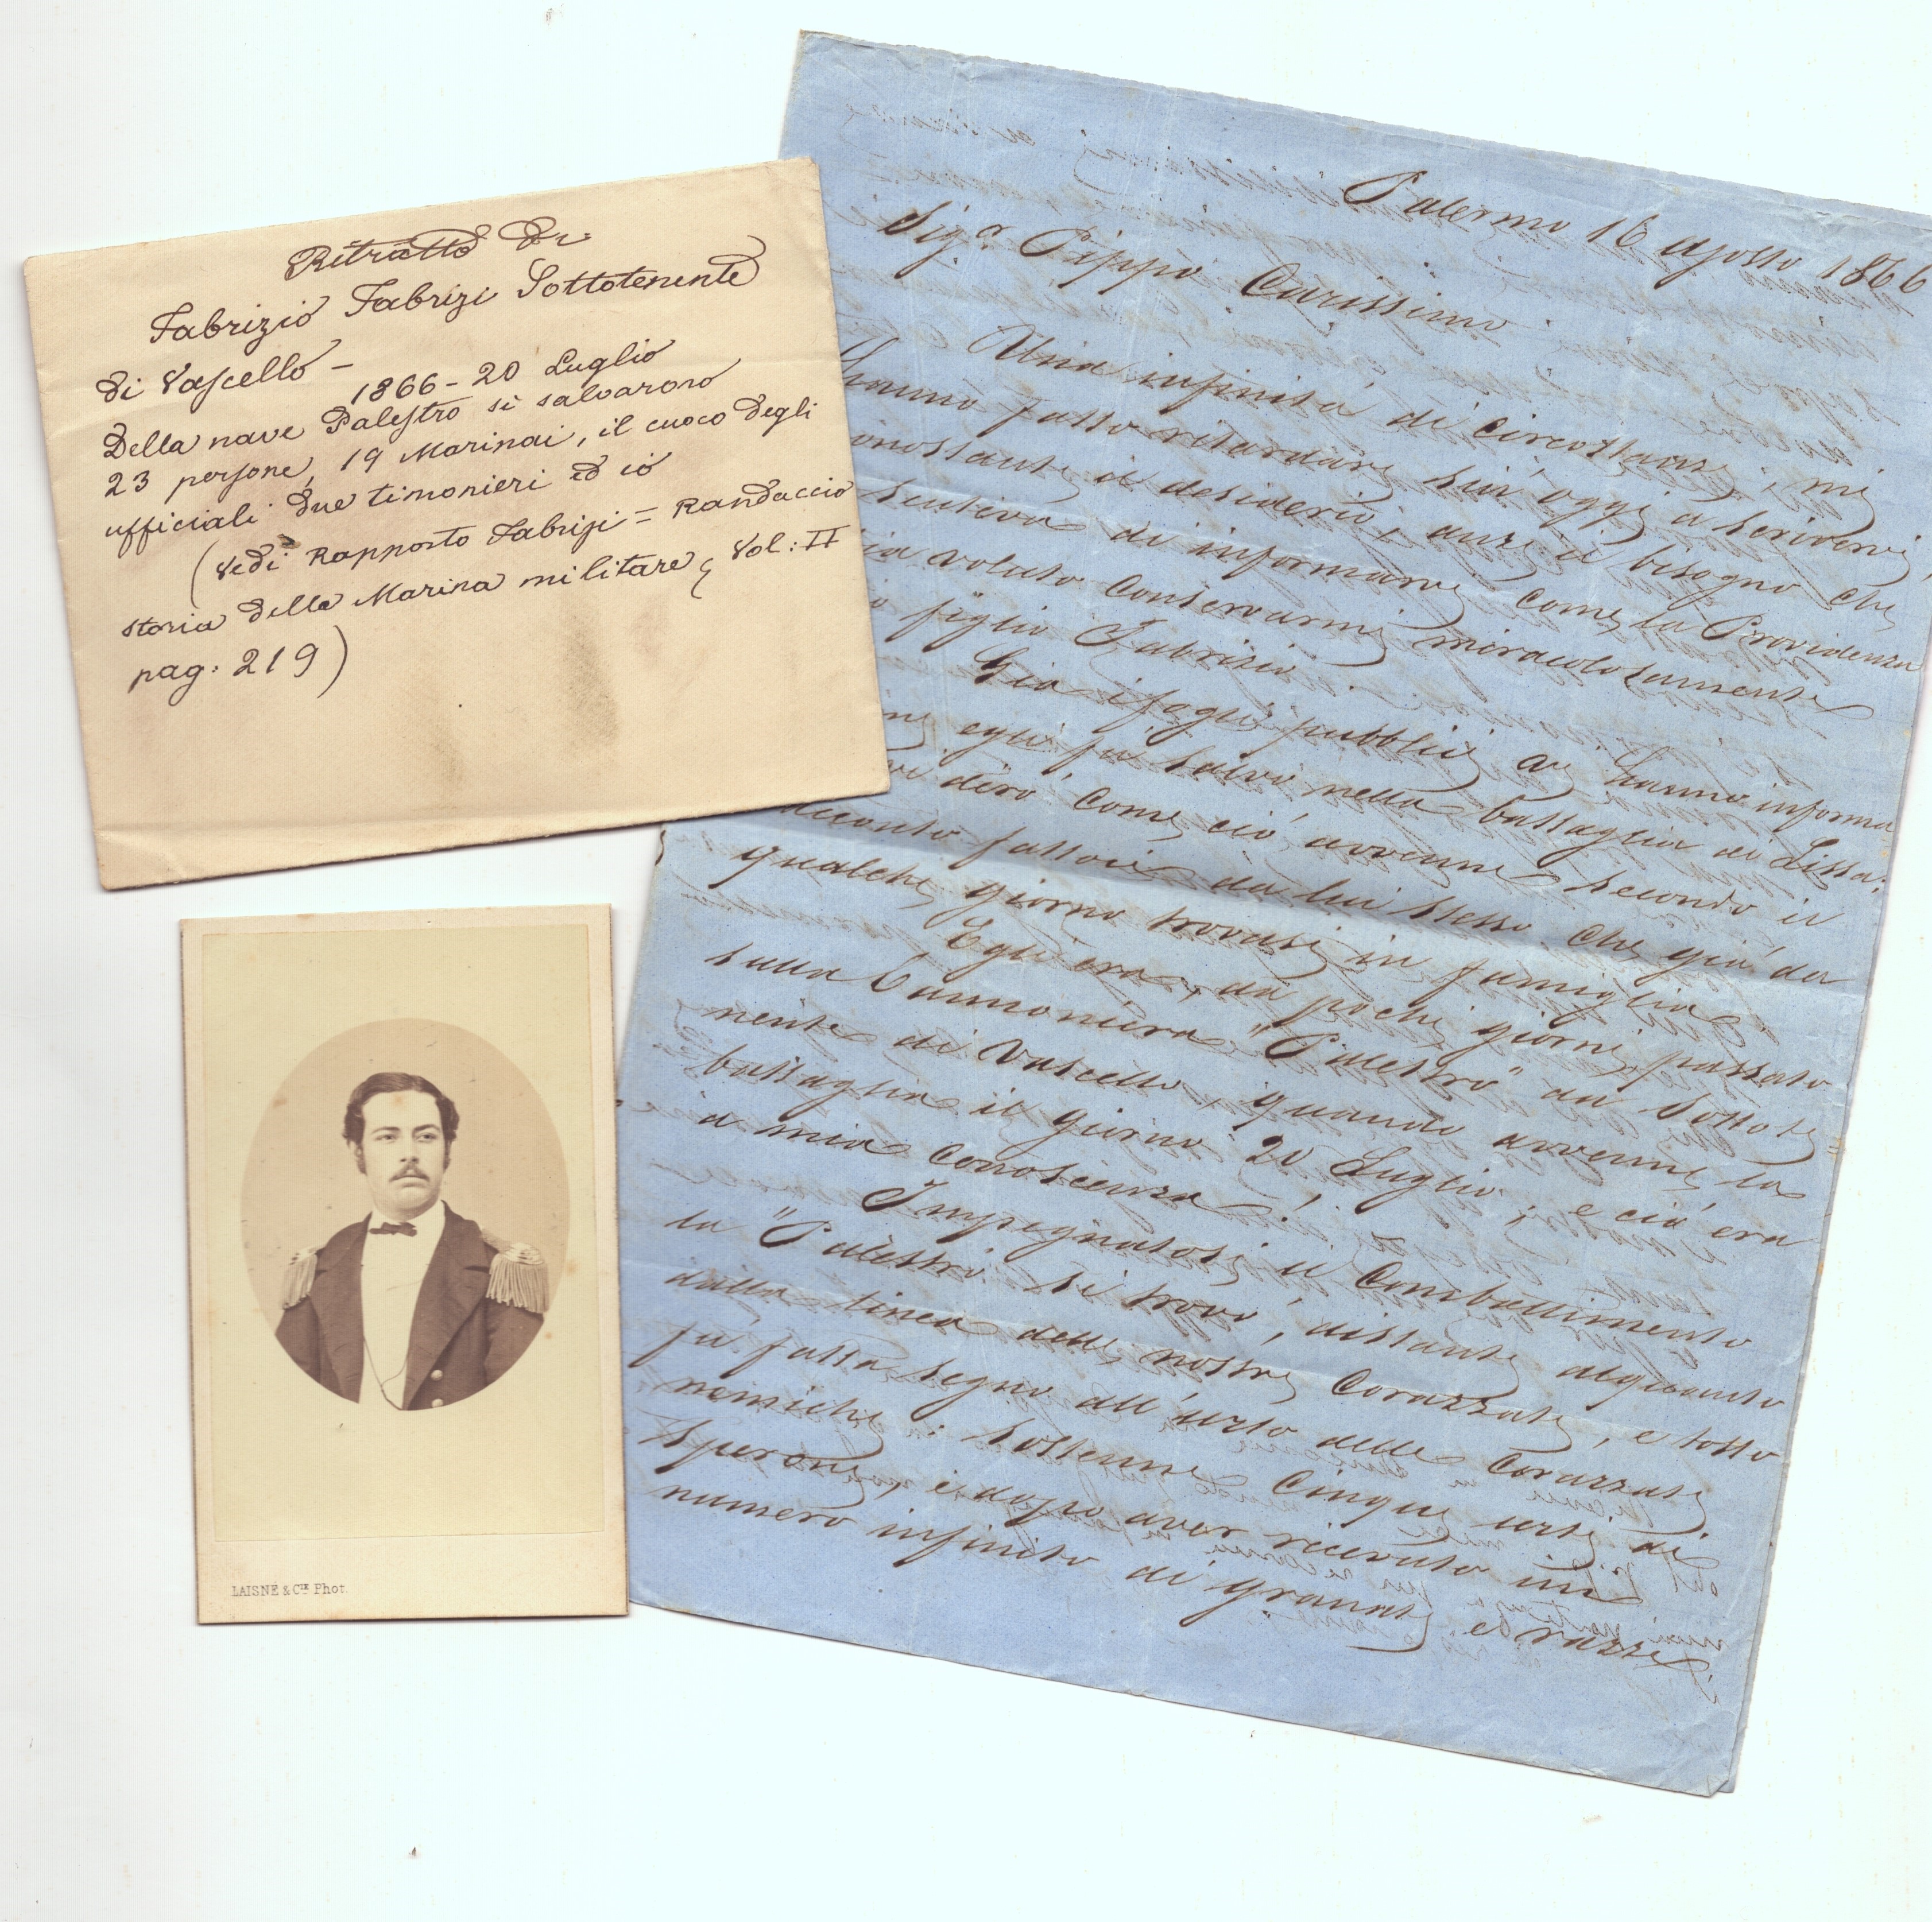 Ritratto di
Fabrizio Fabrizi Sottotenente
di Vascello –
1866 – 20 Luglio
Della nave Palestro si salvarono
23 persone, 19 Marinai, il cuoco degli
ufficiali due timonieri ed io
(vedi Rapporto Fabrizi = Randaccio
storia della Marina militare, Vol: II
pag: 219)
LAISNÉ & Cie Phot.
Palermo 16 agosto 1866
Sigr Pippo Carissimo
Una infinità di circostanze, mi
hanno fatto ritardare sin'oggi a scrivervi,
nonostante il desiderio, anzi il bisogno che
sentiva di informarvi come la Providenza
voluto conservarmi miracolosamente
figlio Fabrizio.
Già i fogli pubblici vi hanno informa
egli fù salvo nella battaglia di Lissa.
vi dirò come ciò avvenne secondo il
racconto fattoci da lui stesso, che già da
qualche giorno trovasi in famiglia.
Egli era, da pochi giorni, passato
sulla Cannoniera "Palestro" da Sottote
nente di Vascello, quando avvenne la
battaglia il giorno 20 Luglio; e ciò era
a mia conoscenza!
Impegnatosi il Combattimento
la "Palestro" si trovò, distante alquanto
dalla linea delle nostre Corazzate, e tosto
fù fatta segno all'urto delle Corazzate
nemiche: sostenne Cinque urti di
Sperone, e dopo aver ricevuto un
numero infinito di granate e razzi